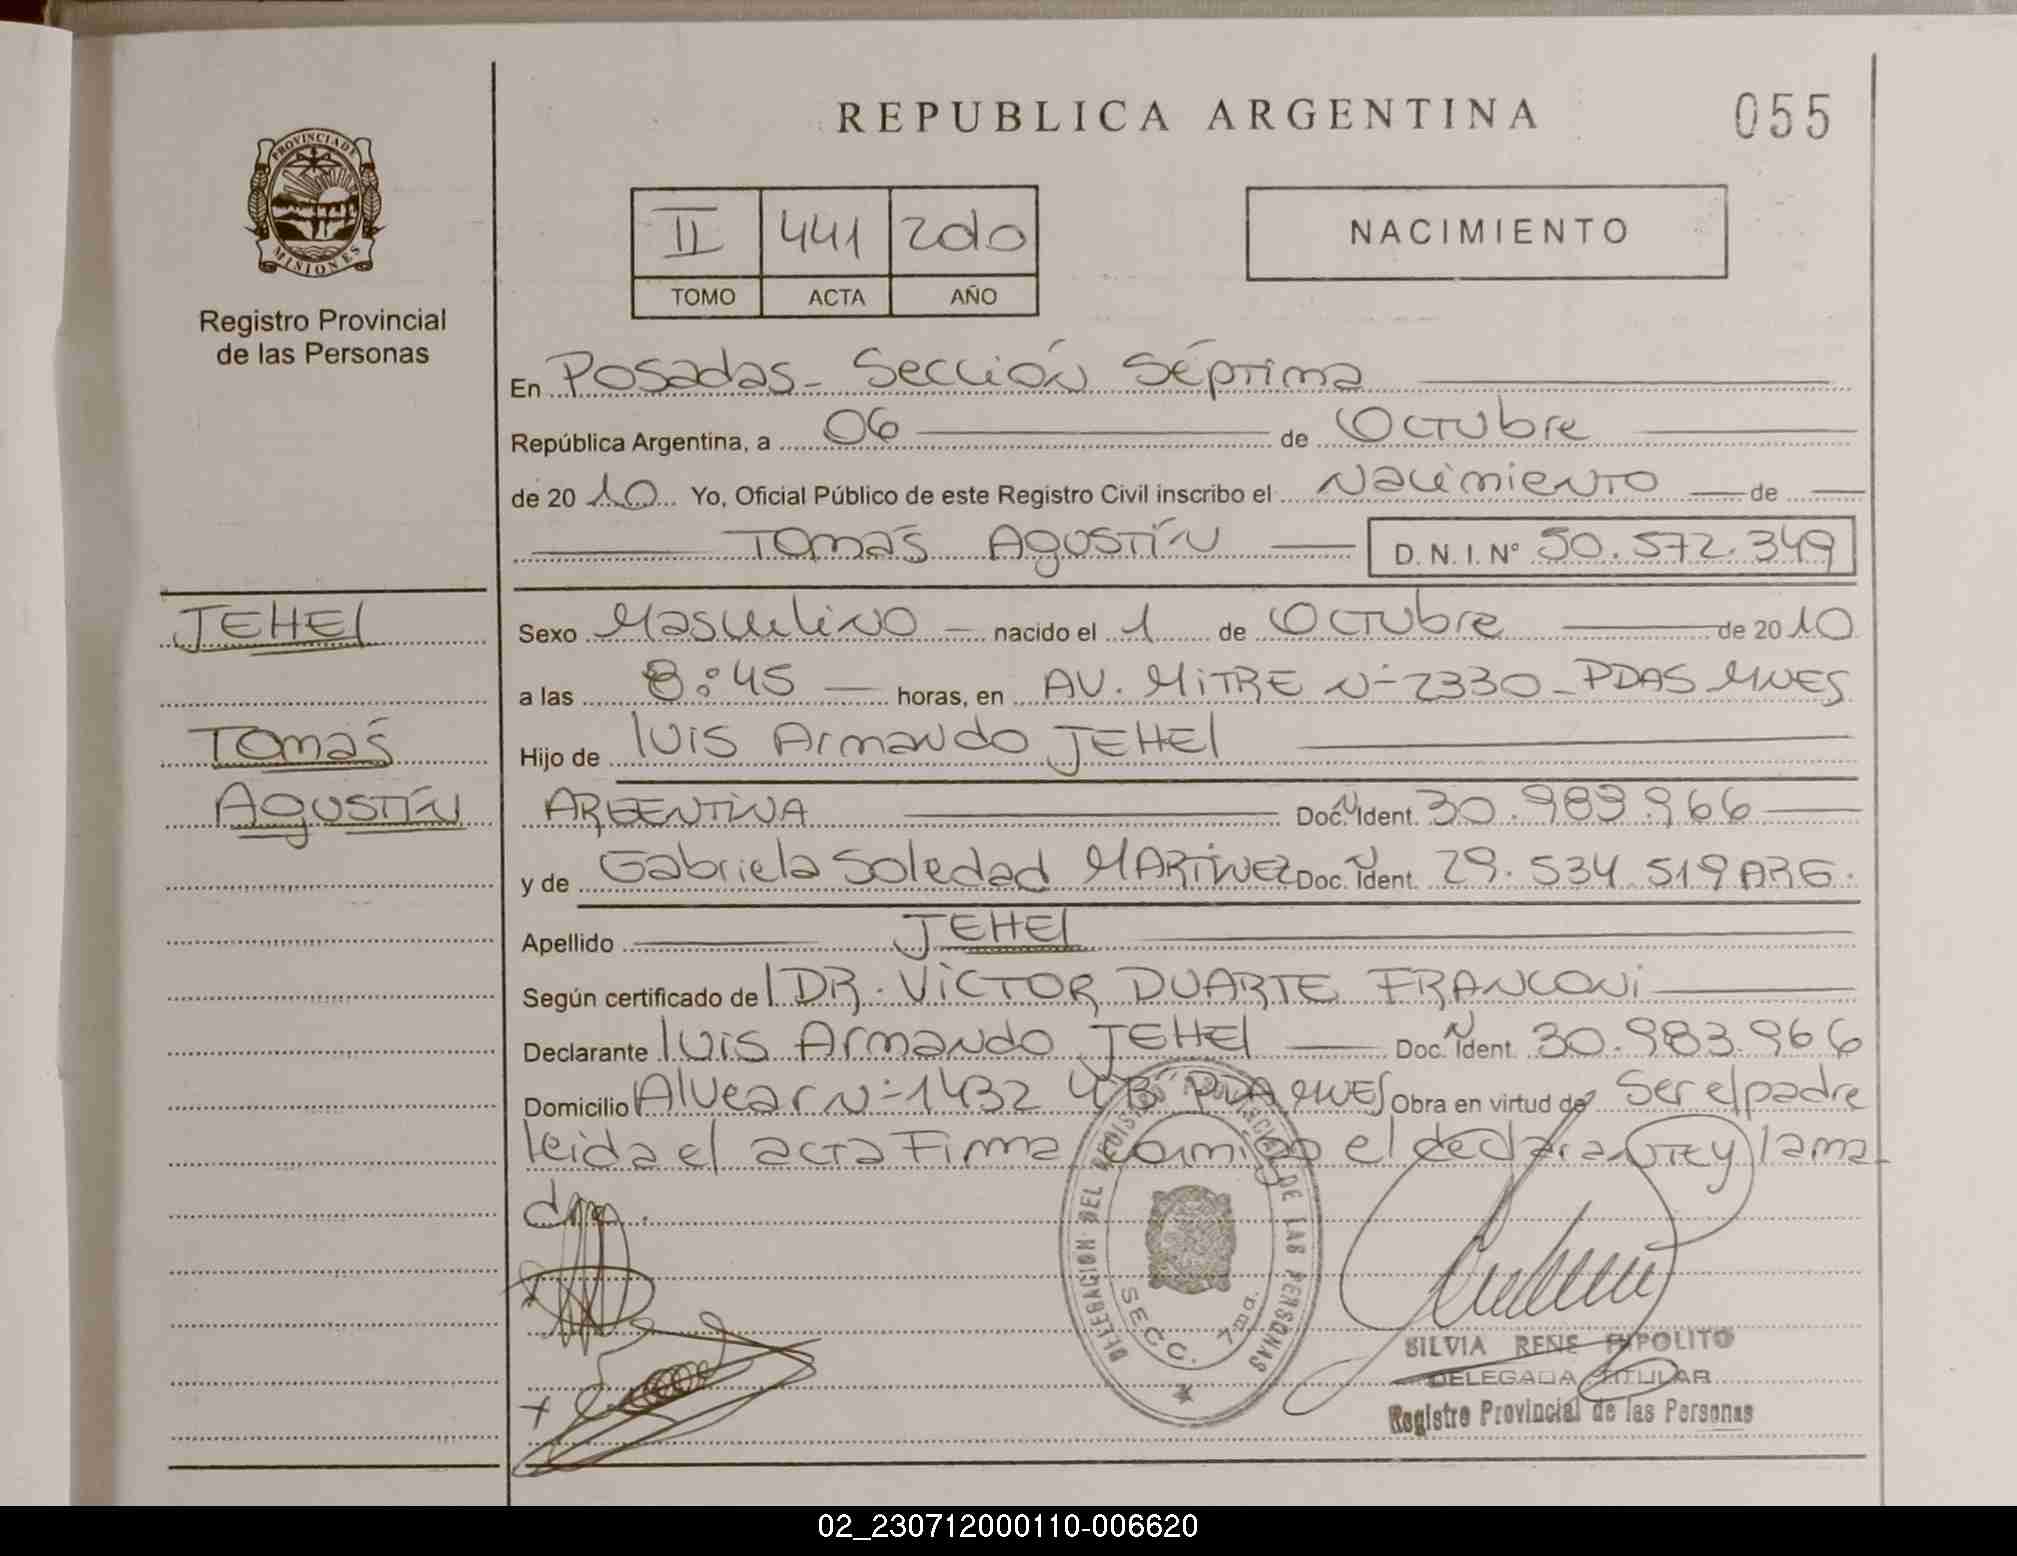 REPUBLICA ARGENTINA
055
PROVINCIA DE
MISIONES
Registro Provincial
de las Personas
II 441 2010
TOMO ACTA AÑO
NACIMIENTO
En Posadas - Sección Séptima
República Argentina, a 06 de Octubre
de 2010 Yo, Oficial Público de este Registro Civil inscribo el Nacimiento de
Tomás Agustín D.N.I. Nº 50.572.349
JEHEl
Tomás
Agustín
Sexo Masculino nacido el 1 de Octubre de 2010
a las 8:45 horas, en AV. MiTRE Nº 2330 - PDAS MNES
Hijo de luis Armando JEHEl
ARGENTINA Doc. N Ident. 30.983.966
y de Gabriela Soledad MARTINEZ Doc. N Ident. 29.534.519 ARG.
Apellido JEHEl
Según certificado del DR. VICTOR DUARTE FRANCONi
Declarante luis Armando JEHEl Doc. N Ident. 30.983.966
Domicilio Alvear Nº 1432 4º "B" PDA MNES Obra en virtud de Ser el padre
leida el acta Firma conmigo el declarante y la ma
dre.
DELEGACION DEL REGISTRO PROVINCIAL DE LAS PERSONAS
SECC. 7ma.
SILVIA RENE HIPOLITO
DELEGADA TITULAR
Registro Provincial de las Personas
02_230712000110-006620